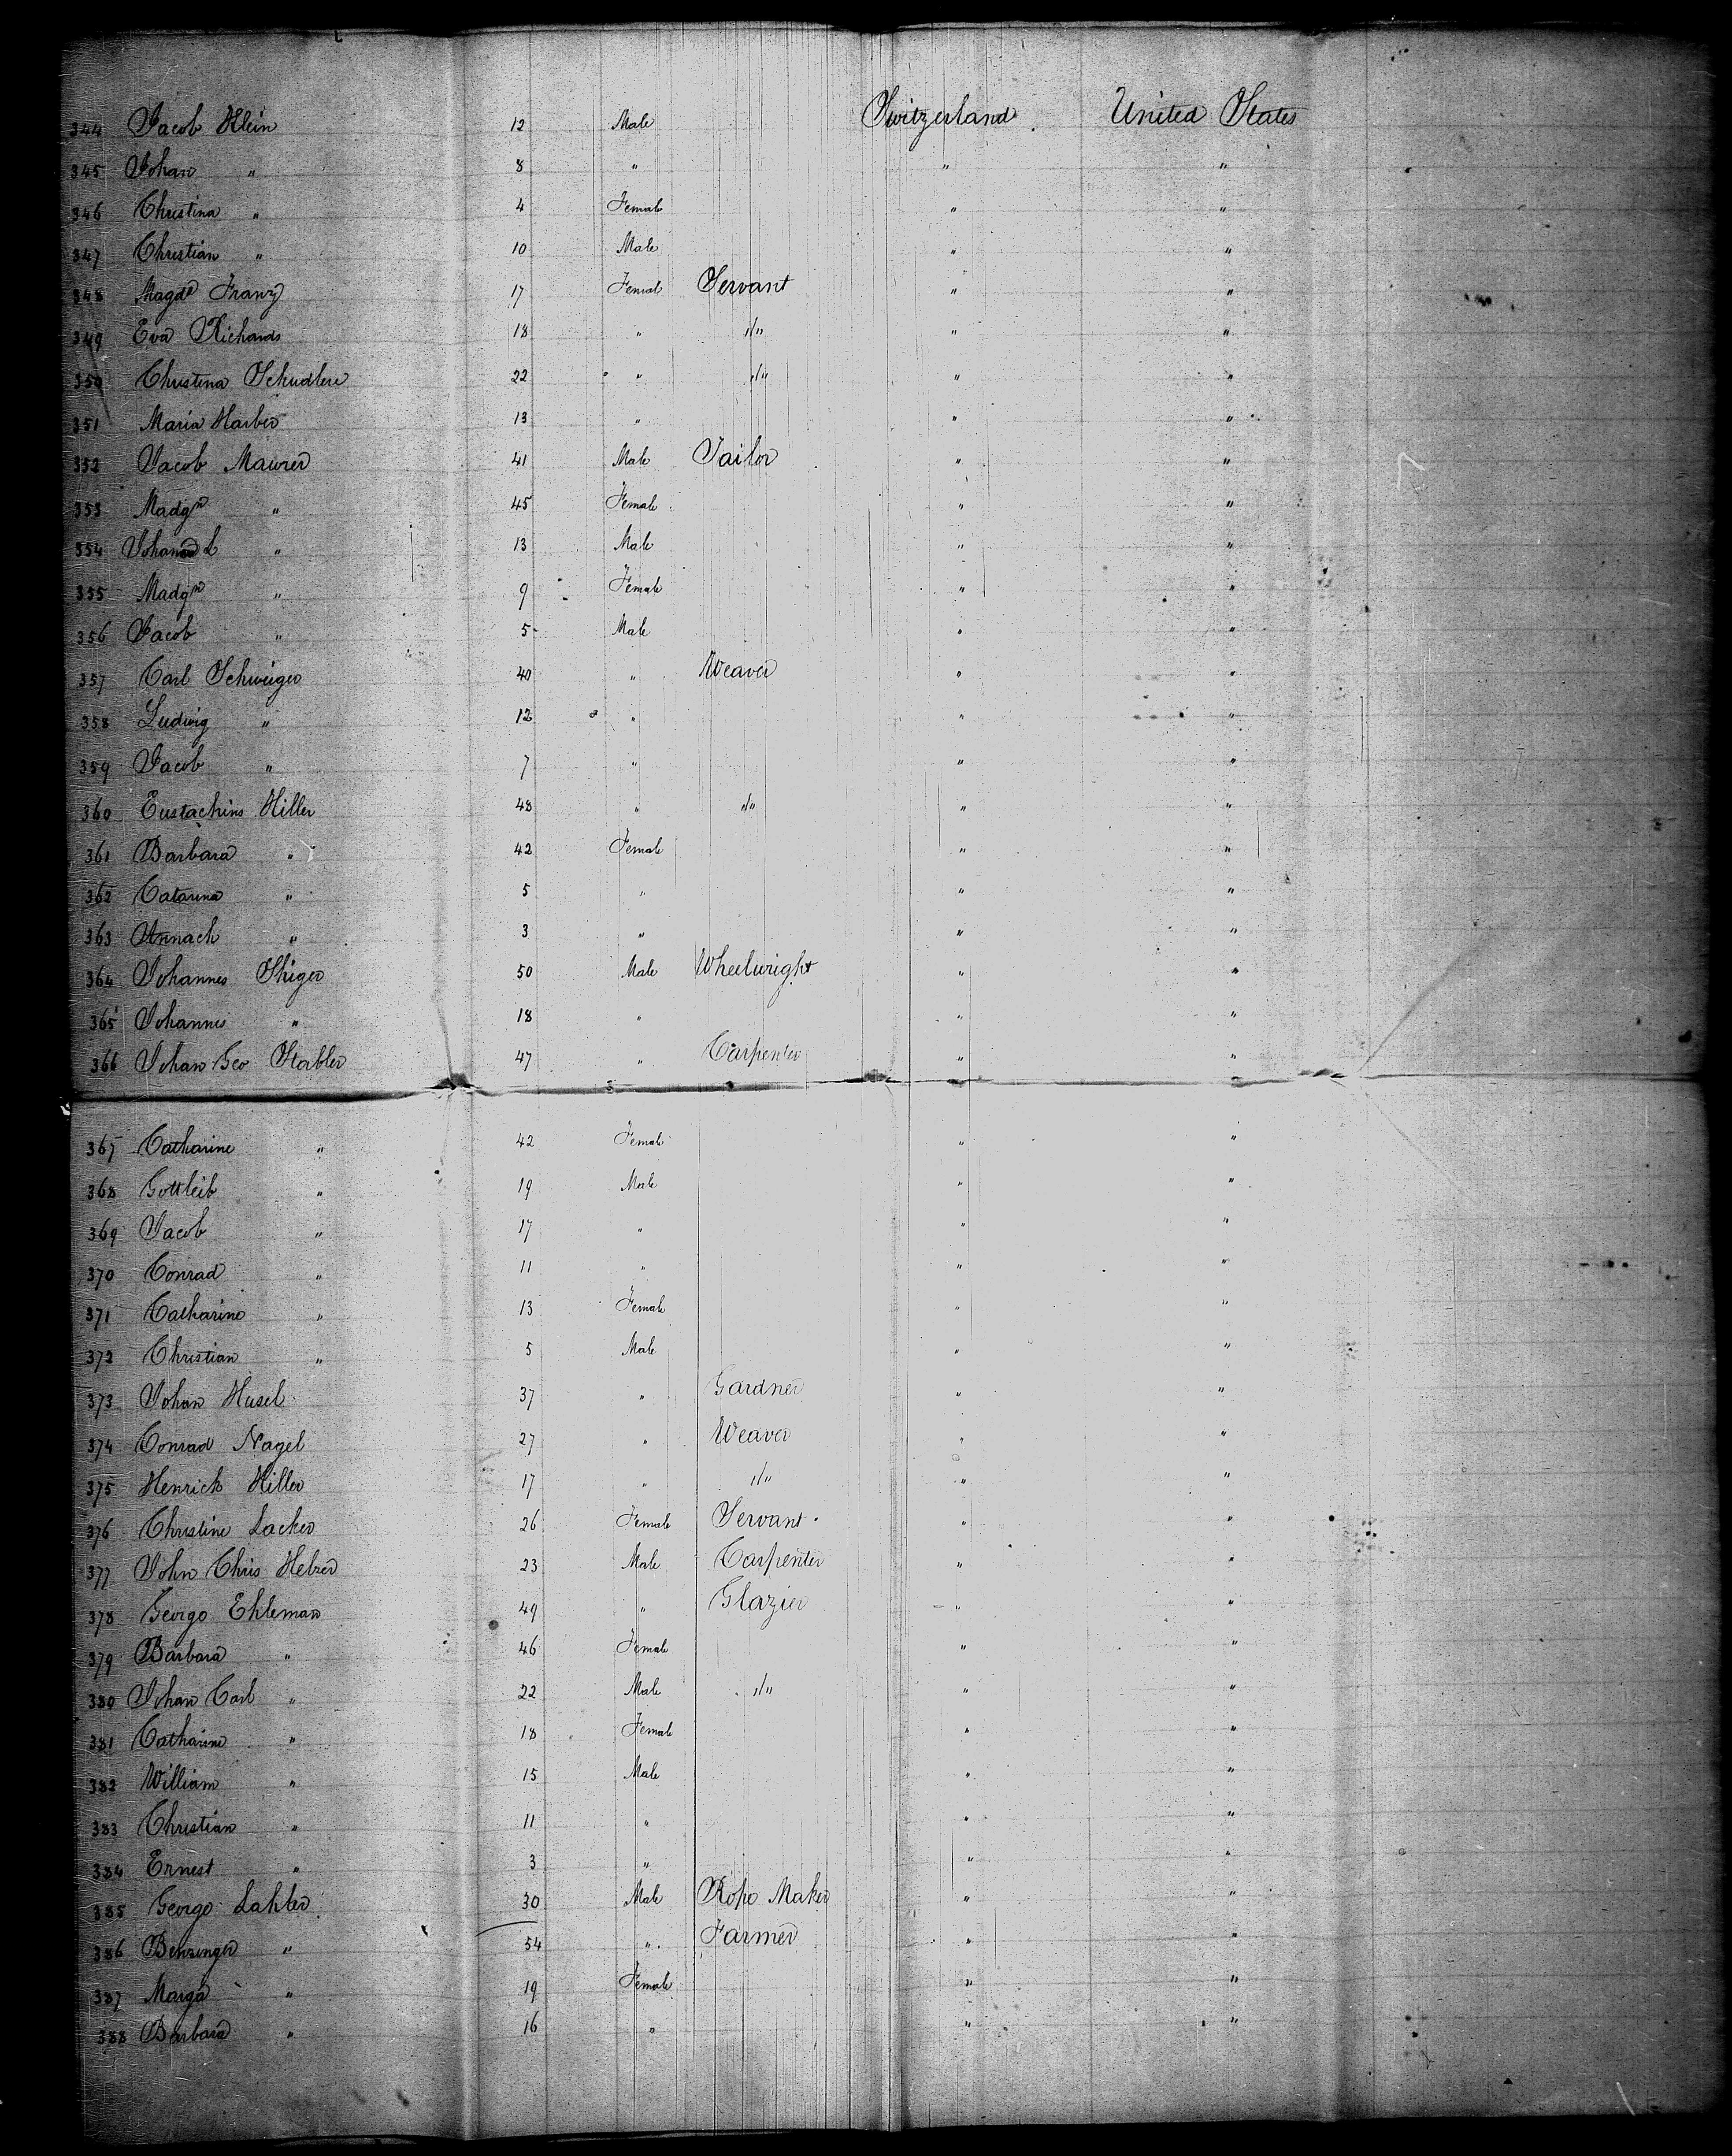 344 Jacob Klein 12 Male Switzerland United States
345 Johan " 8 " " "
346 Christina " 4 Female " "
347 Christian " 10 Male " "
348 Magda Franz 17 Female Servant " "
349 Eva Richards 18 " "/" " "
350 Christina Schudlere 22 " "/" " "
351 Maria Harber 13 " " "
352 Jacob Maurer 41 Male Tailor " "
353 Madgn " 45 Female " "
354 Johann L " 13 Male " "
355 Madgn " 9 Female " "
356 Jacob " 5 Male " "
357 Carl Schweiger 40 " Weaver " "
358 Ludwig " 12 " " "
359 Jacob " 7 " " "
360 Eustachius Hiller 48 " "/" " "
361 Barbara " 42 Female " "
362 Catarina " 5 " " "
363 Annach " 3 " " "
364 Johannes Shiger 50 Male Wheelwright " "
365 Johannes " 18 " " "
366 Johan Geo Stabler 47 " Carpenter " "
367 Catharine " 42 Female " "
368 Gottleib " 19 Male " "
369 Jacob " 17 " " "
370 Conrad " 11 " " "
371 Catharine " 13 Female " "
372 Christian " 5 Male " "
373 Johan Husel 37 " Gardner " "
374 Conrad Nagel 27 " Weaver " "
375 Henrich Hiller 17 " "/" " "
376 Christine Lacker 26 Female Servant " "
377 John Chris Helzer 23 Male Carpenter " "
378 George Ehleman 49 " Glazier " "
379 Barbara " 46 Female " "
380 Johan Carl " 22 Male "/" " "
381 Catharine " 18 Female " "
382 William " 15 Male " "
383 Christian " 11 " " "
384 Ernest " 3 " " "
385 George Lahler 30 Male Rope Maker " "
386 Benzinger " 54 " Farmer " "
387 Marga " 19 Female " "
388 Barbara " 16 " " "